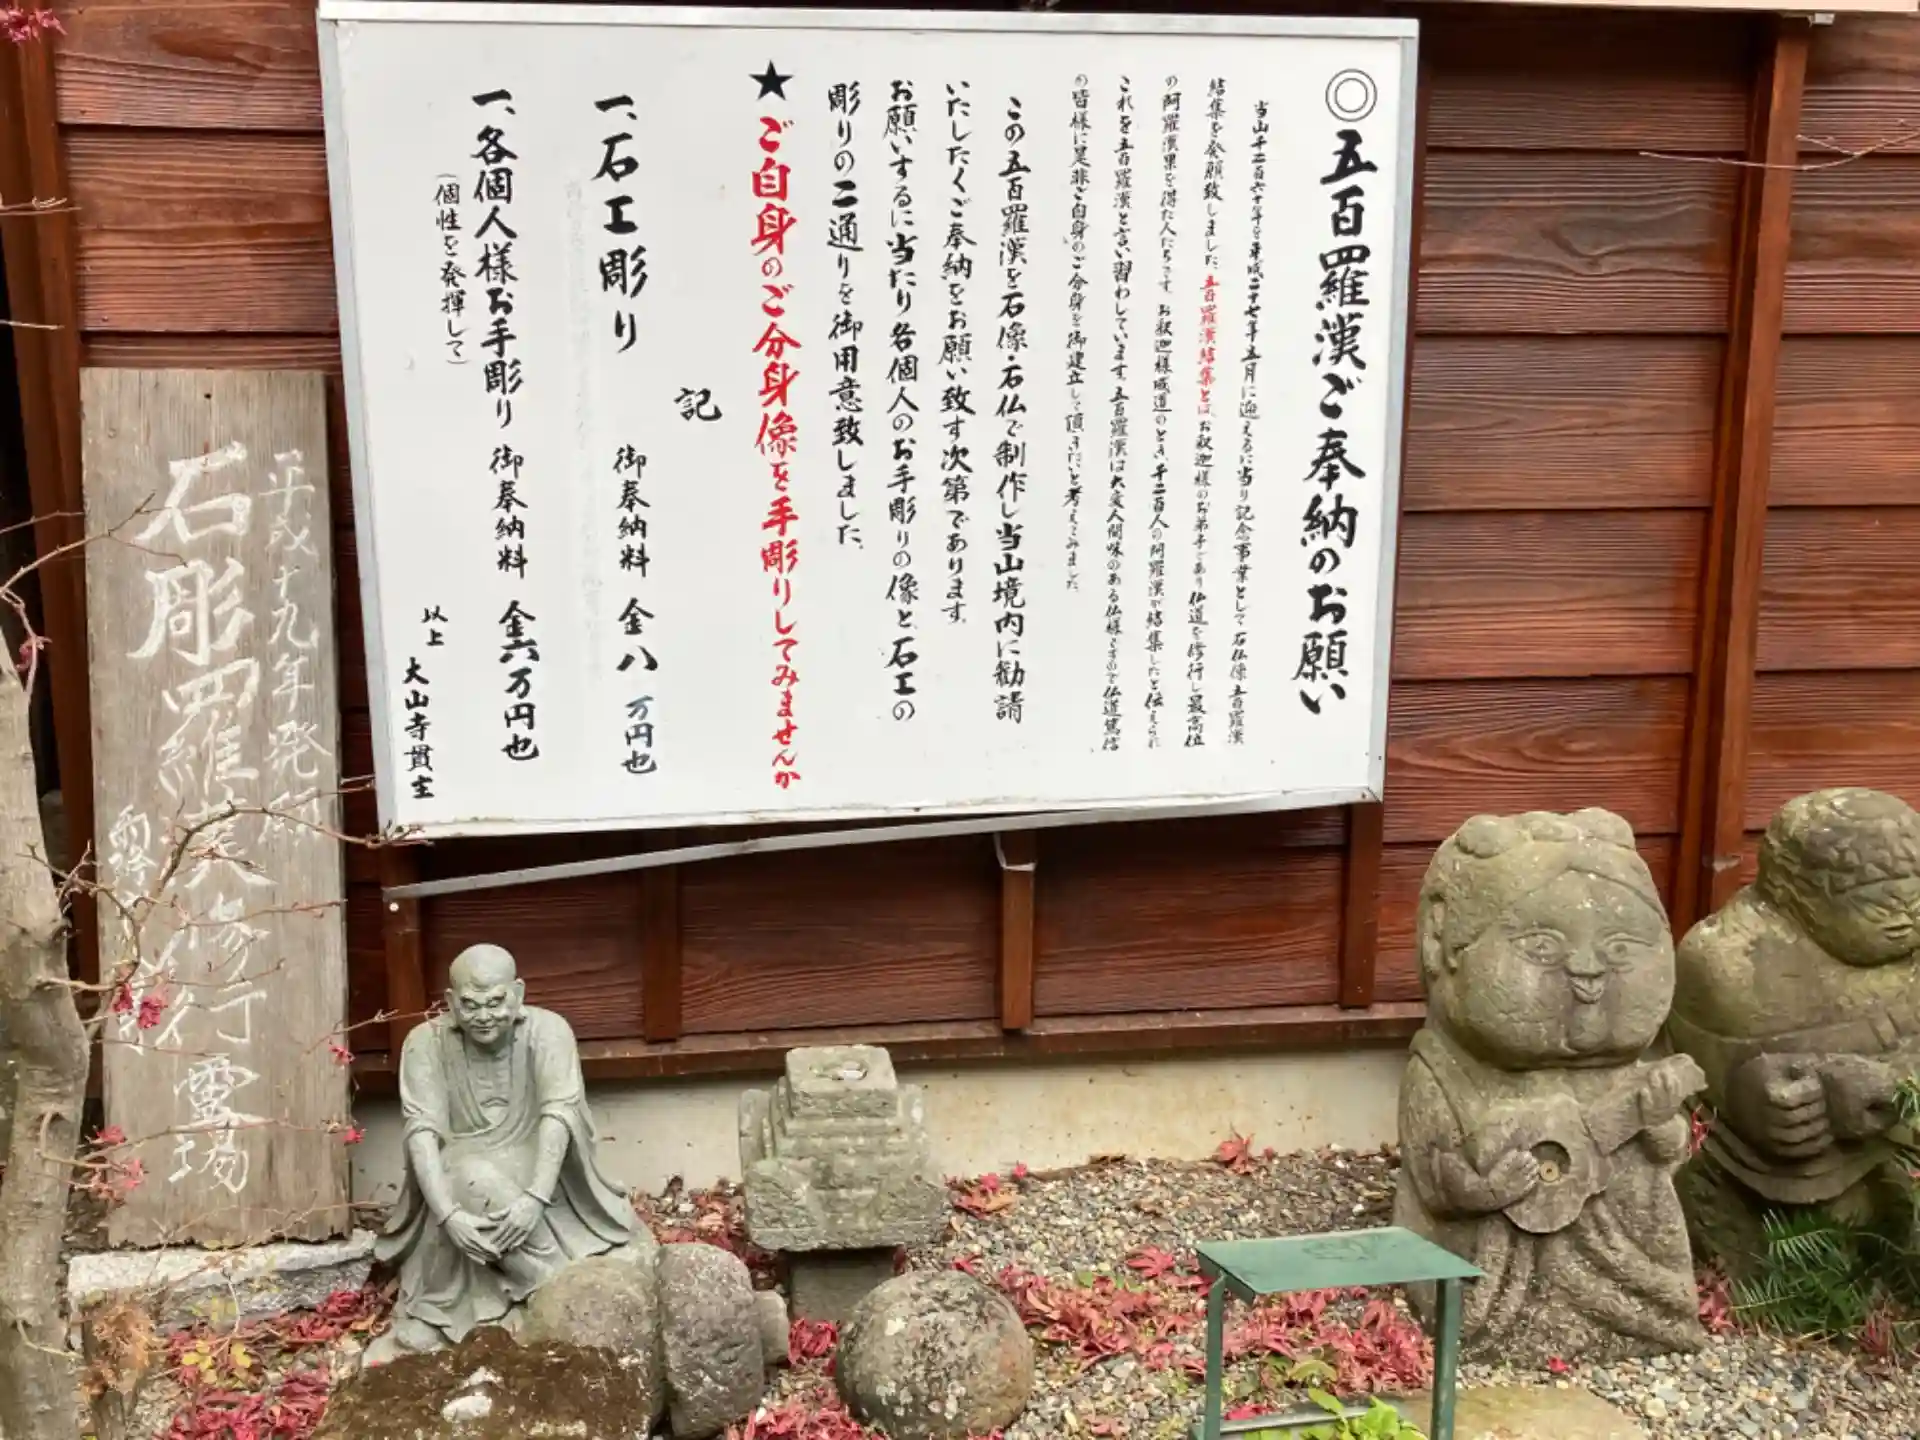 ◎五百羅漢ご奉納のお願い
当山千二百六十年を平成二十七年五月に迎えるに当り記念事業として石仏像五百羅漢
結集を発願致しました。五百羅漢結集とは、お釈迦様のお弟子であり仏道を修行し最高位
の阿羅漢果を得た人たちです。お釈迦様成道のとき、千二百人の阿羅漢が結集したと伝えられ
これを五百羅漢と言い習わしています。五百羅漢は大変人間味のある仏様ですので仏道篤信
の皆様に是非ご自身のご分身を御建立して頂きたいと考えてみました。
この五百羅漢を石像・石仏で制作し当山境内に勧請
いたしたくご奉納をお願い致す次第であります。
お願いするに当たり各個人のお手彫りの像と、石工の
彫りの二通りを御用意致しました。
★ご自身のご分身像を手彫りしてみませんか
記
一、石工彫り 御奉納料 金八万円也
一、各個人様お手彫り 御奉納料 金六万円也
（個性を発揮して）
以上 大山寺貫主
平成十九年発願
石彫羅漢修行霊場